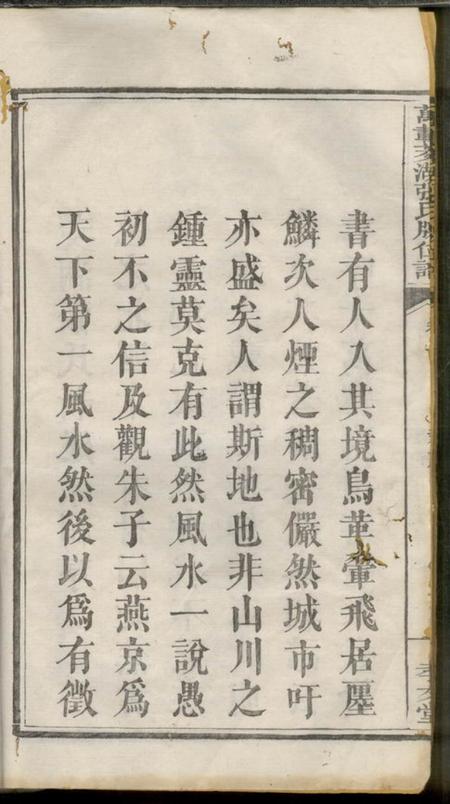 萬載
張氏
一
孝友堂
書有人入其境鳥革翬飛居廛
鱗次人煙之稠密儼然城市吁
亦盛矣人謂斯地也非山川之
鍾靈莫克有此然風水一說愚
初不之信及觀朱子云燕京爲
天下第一風水然後以爲有徵